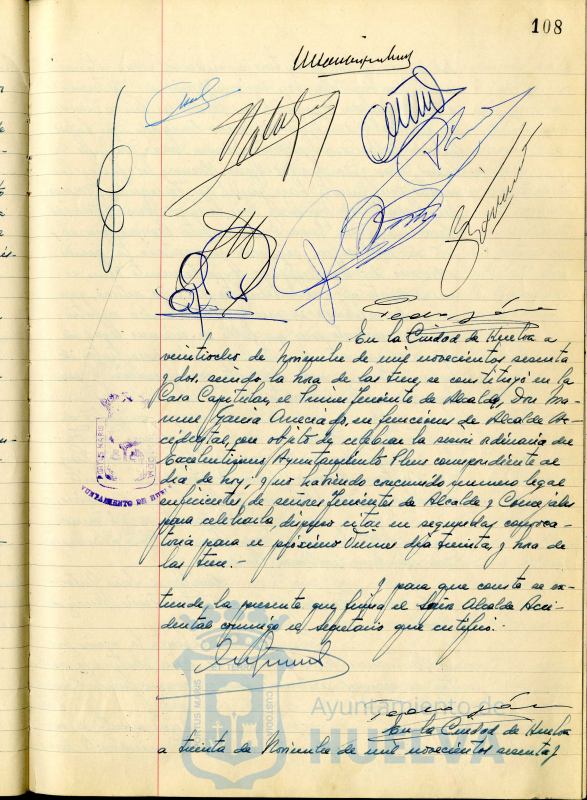 108
En la Ciudad de Huelva a
veintiocho de Noviembre de mil novecientos sesenta
y dos, siendo la hora de las trece, se constituyó en la
Casa Capitular, el Primer Teniente de Alcalde, Don Ma-
nuel García en funciones de Alcalde Ac-
cidental, con objeto de celebrar la sesión ordinaria del
Excelentísimo Ayuntamiento Pleno correspondiente al
día de hoy, y no habiendo concurrido número legal
suficientes de señores Tenientes de Alcalde y Concejales
para celebrarla, dispuso citar en segunda convoca-
toria para el próximo Viernes día treinta y hora de
las trece.-
Y para que conste se ex-
tiende la presente que firma el Señor Alcalde Acci-
dental conmigo el Secretario que certifico.-
AYUNTAMIENTO DE HUELVA
Ayuntamiento de
HUELVA
En la Ciudad de Huelva
a treinta de Noviembre de mil novecientos sesenta y